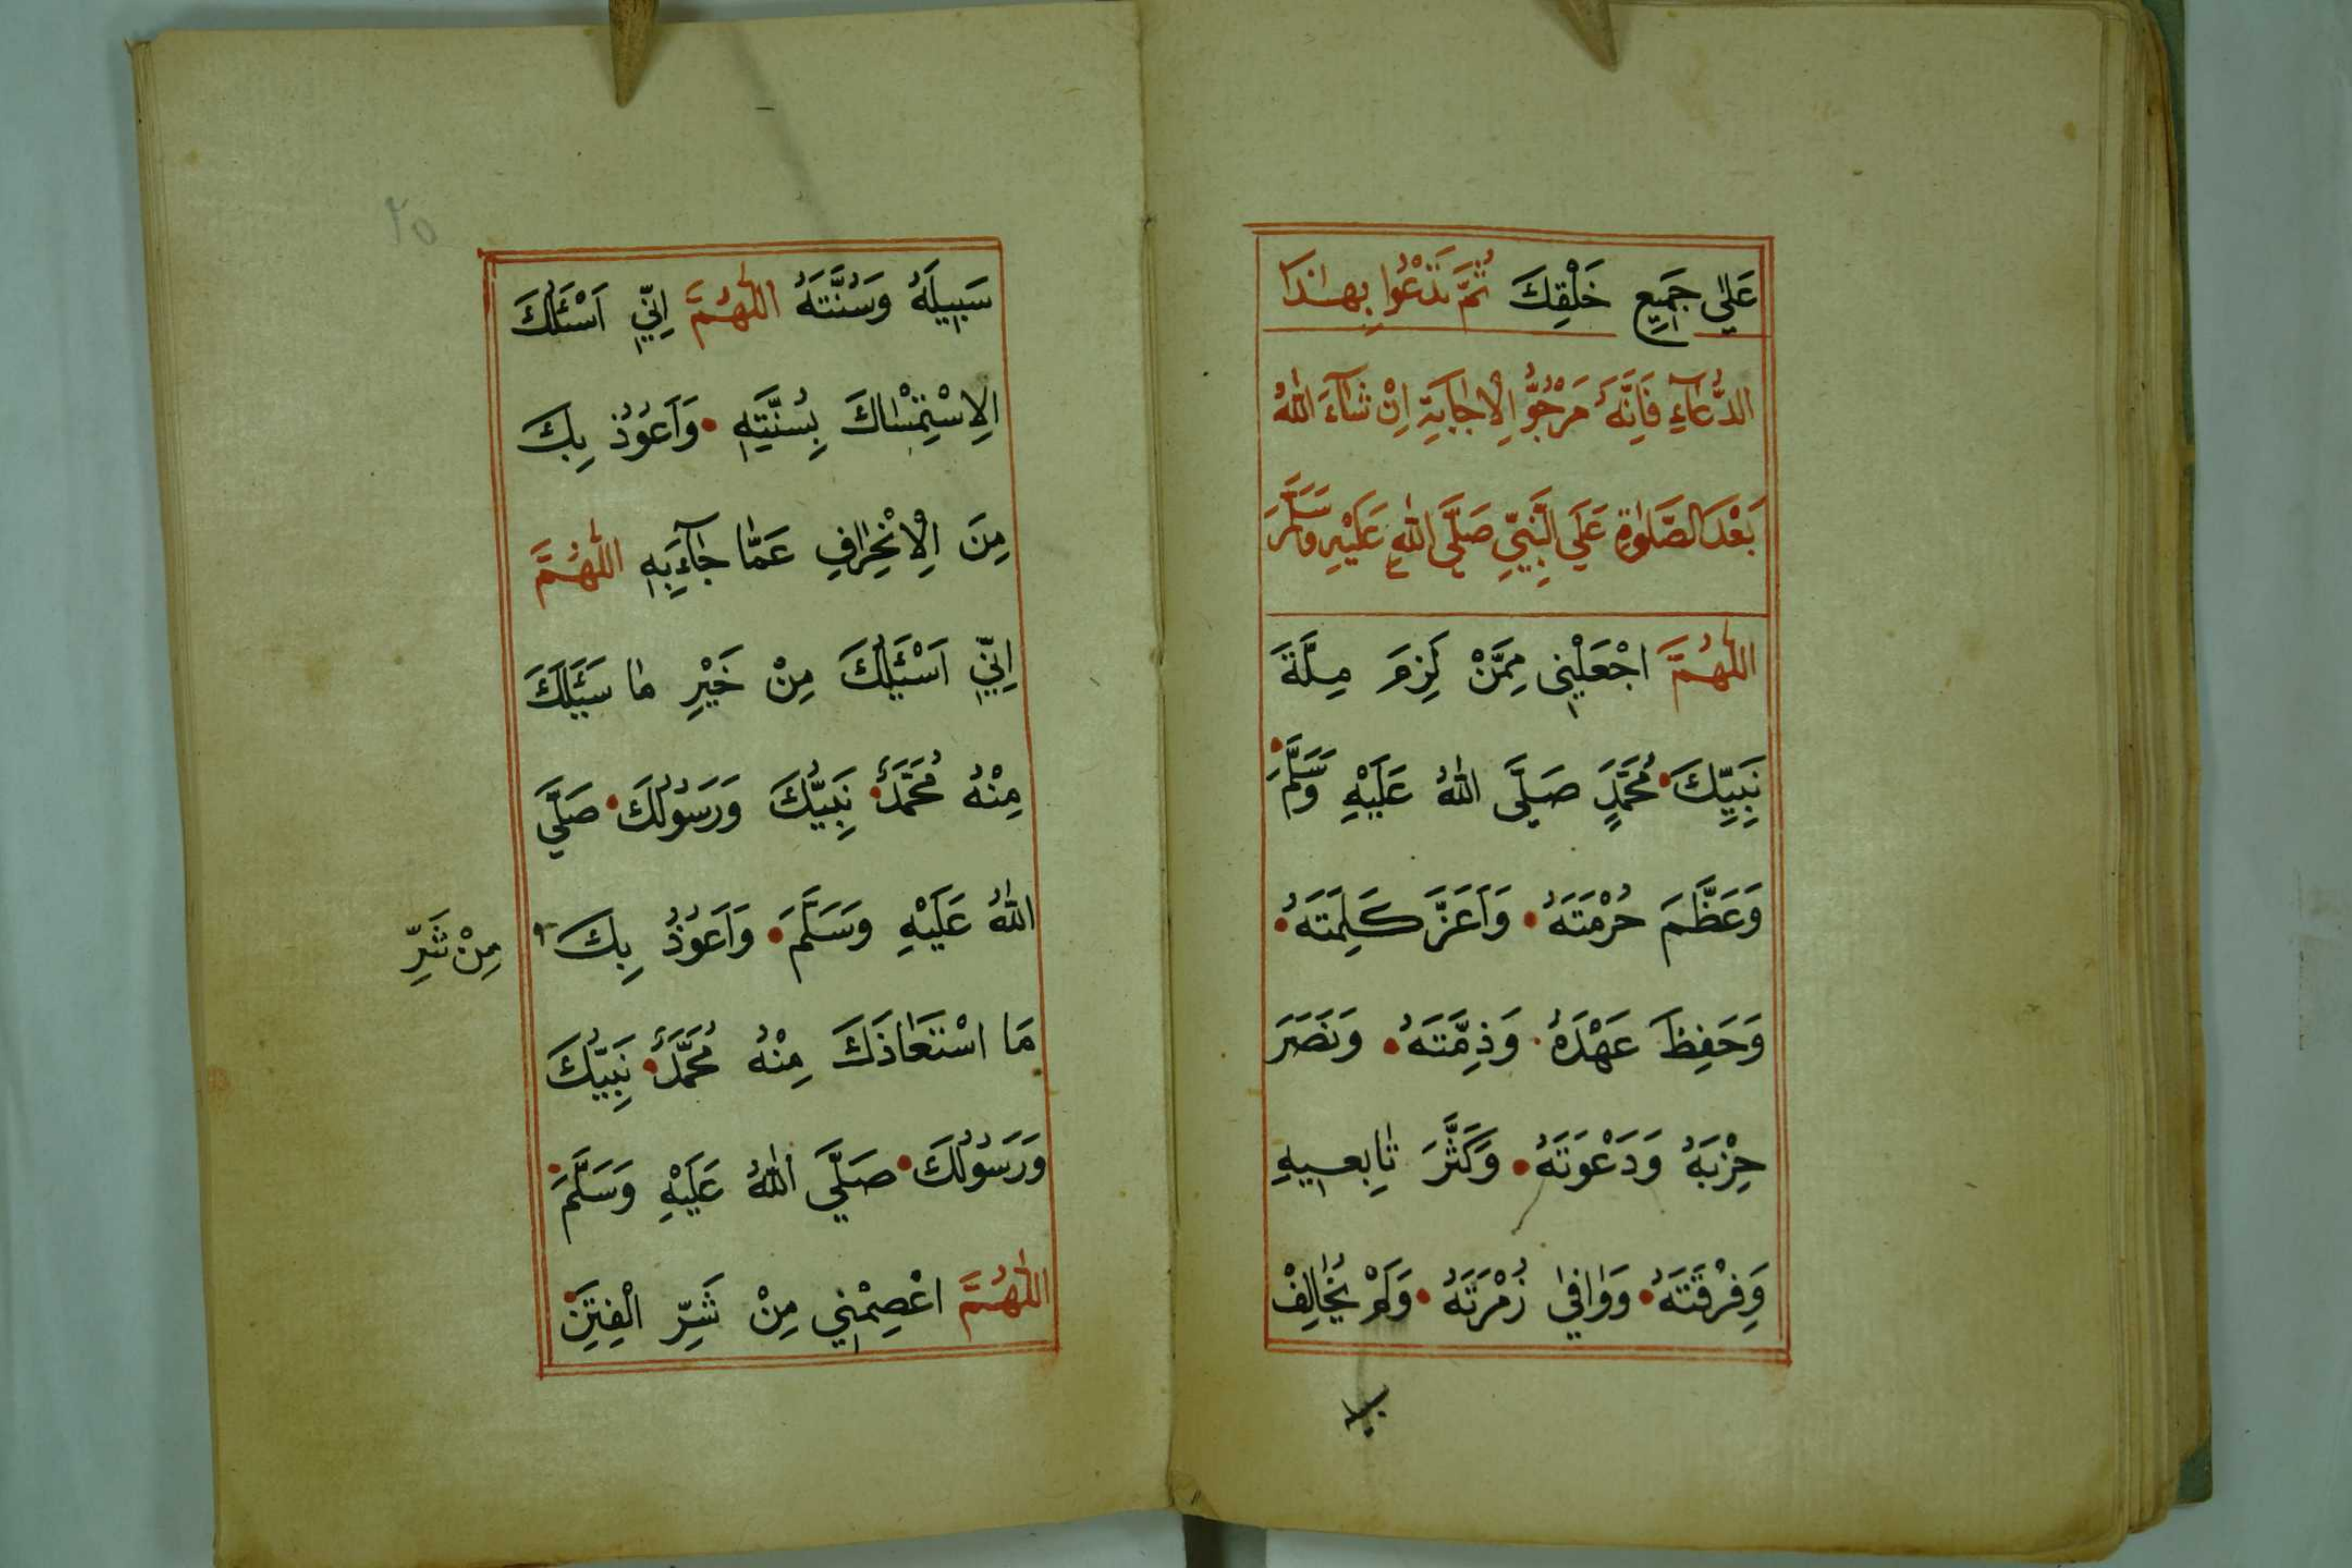 عَلٰي جَمِيعِ خَلْقِكَ ثُمَّ تَدْعُوا بِهٰذَا
الدُّعَآءِ فَاِنَّهُ مَرْجُوُّ الْاِجَابَةِ اِنْ شَآءَ اللّٰهُ
بَعْدَ الصَّلٰوةِ عَلَي النَّبِيِّ صَلَّى اللّٰهُ عَلَيْهِ وَسَلَّمَ
اَللّٰهُمَّ اجْعَلْنِي مِمَّنْ لَزِمَ مِلَّةَ
نَبِيِّكَ مُحَمَّدٍ صَلَّى اللّٰهُ عَلَيْهِ وَسَلَّمَ
وَعَظَّمَ حُرْمَتَهُ وَاَعَزَّ كَلِمَتَهُ
وَحَفِظَ عَهْدَهُ وَذِمَّتَهُ وَنَصَرَ
حِزْبَهُ وَدَعْوَتَهُ وَكَثَّرَ تَابِعِيهِ
وَفِرْقَتَهُ وَوَافٰي زُمْرَتَهُ وَلَمْ يُخَالِفْ
٢٥
سَبِيلَهُ وَسُنَّتَهُ اَللّٰهُمَّ اِنِّي اَسْئَلُكَ
الِاسْتِمْسَاكَ بِسُنَّتِهِ وَاَعُوذُ بِكَ
مِنَ الْاِنْحِرَافِ عَمَّا جَآءَ بِهِ اَللّٰهُمَّ
اِنِّي اَسْئَلُكَ مِنْ خَيْرِ مَا سَئَلَكَ
مِنْهُ مُحَمَّدٌ نَبِيُّكَ وَرَسُولُكَ صَلَّي
اللّٰهُ عَلَيْهِ وَسَلَّمَ وَاَعُوذُ بِكَ
مِنْ شَرِّ
مَا اسْتَعَاذَكَ مِنْهُ مُحَمَّدٌ نَبِيُّكَ
وَرَسُولُكَ صَلَّي اللّٰهُ عَلَيْهِ وَسَلَّمَ
اَللّٰهُمَّ اعْصِمْنِي مِنْ شَرِّ الْفِتَنِ